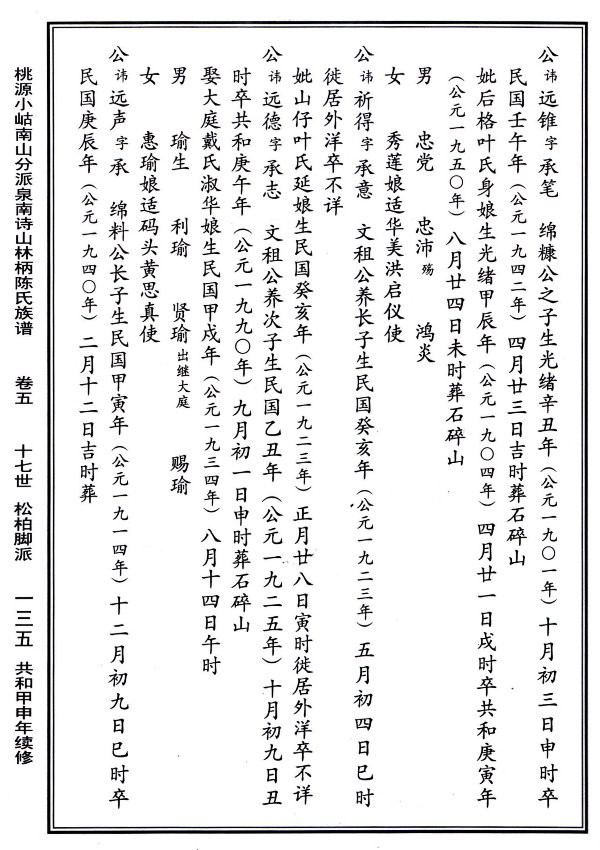 公讳远锥字承笔　绵糠公之子生光绪辛丑年（公元一九〇一年）十月初三日申时卒
民国壬午年（公元一九四二年）四月廿三日吉时葬石碎山
妣后格叶氏身娘生光绪甲辰年（公元一九〇四年）四月廿一日戌时卒共和庚寅年
（公元一九五〇年）八月廿四日未时葬石碎山
男　忠党　忠沛殇　鸿炎
女　秀莲娘适华美洪启仪使
公讳祈得字承意　文祖公养长子生民国癸亥年（公元一九二三年）五月初四日巳时
徙居外洋卒不详
妣山仔叶氏延娘生民国癸亥年（公元一九二三年）正月廿八日寅时徙居外洋卒不详
公讳远德字承志　文祖公养次子生民国乙丑年（公元一九二五年）十月初九日丑
时卒共和庚午年（公元一九九〇年）九月初一日申时葬石碎山
娶大庭戴氏淑华娘生民国甲戍年（公元一九三四年）八月十四日午时
男　瑜生　利瑜　贤瑜出继大庭　赐瑜
女　惠瑜娘适码头黄思真使
公讳远声字承　绵料公长子生民国甲寅年（公元一九一四年）十二月初九日巳时卒
民国庚辰年（公元一九四〇年）二月十二日吉时葬
桃源小岵南山分派泉南诗山林柄陈氏族谱　卷五　十七世　松柏脚派　一三五　共和甲申年续修